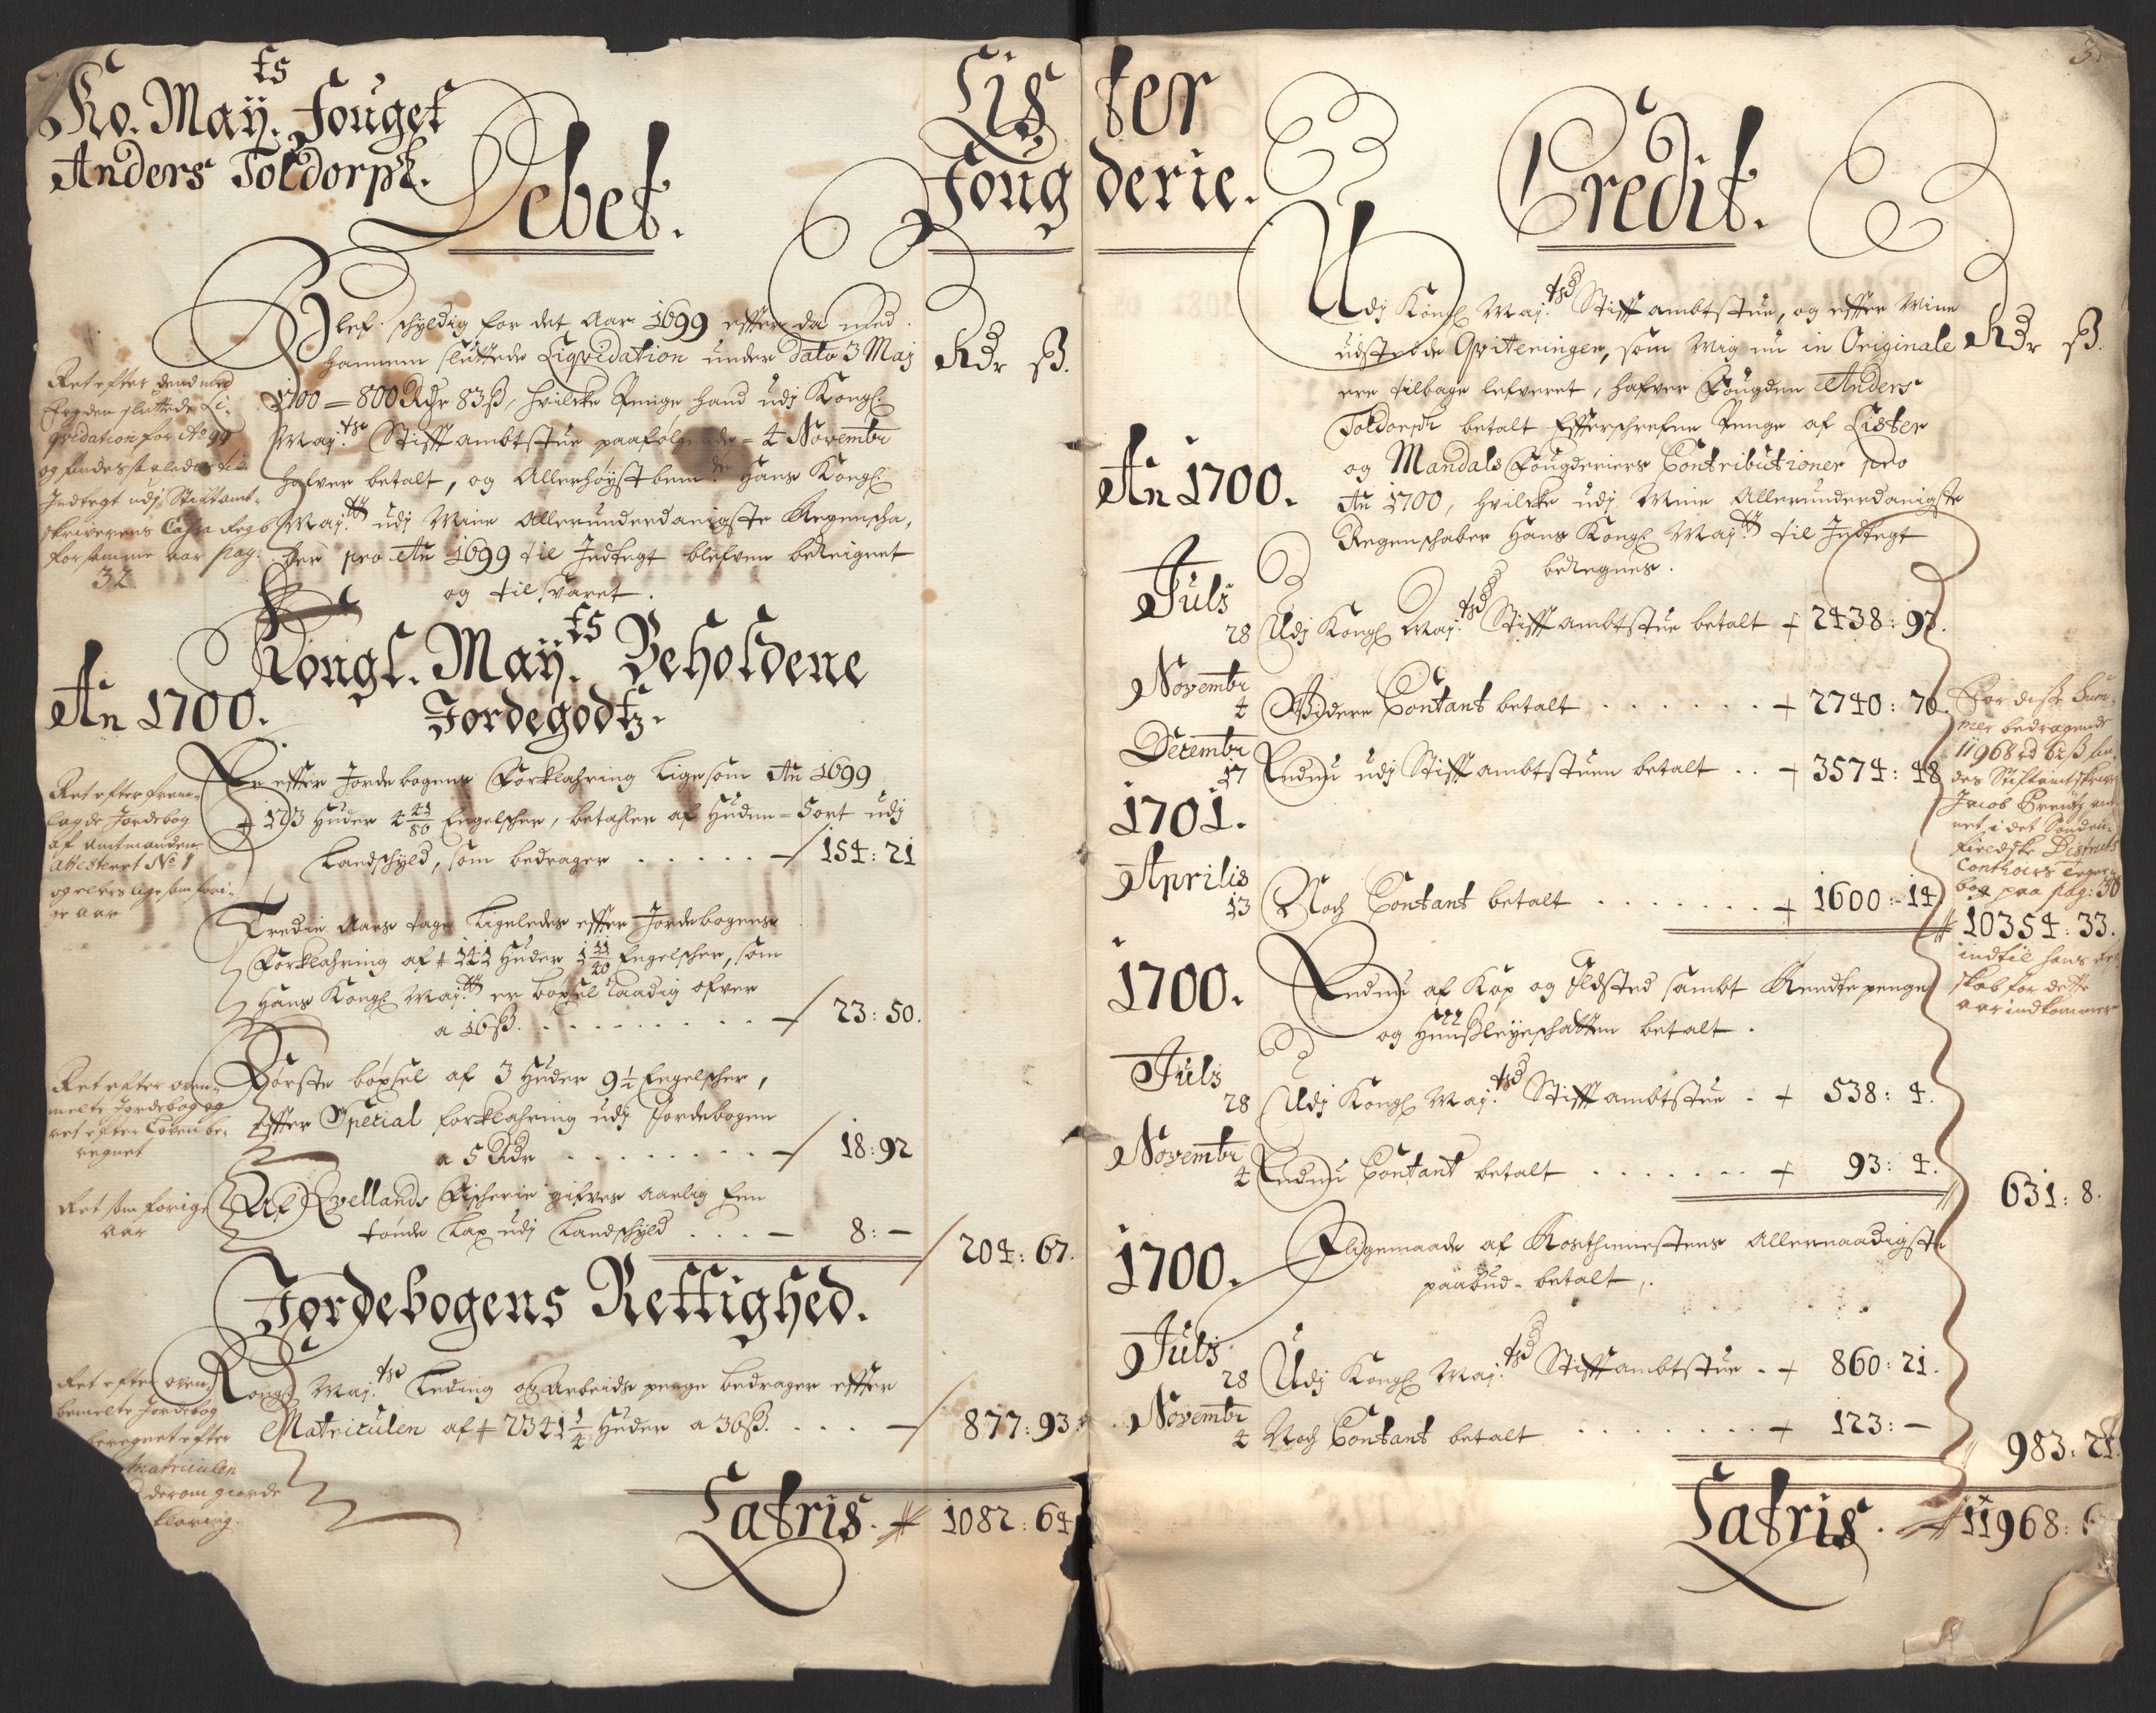 Ko. Maÿ.ts Fouget
Anders Toldorph.
Lis ter
Foug derie.
Debet.
Blef schÿldig for det Aar 1699 effter da med
hannem sluttede Liqvidation under Dato 3 Maj
1700 = 800 Rdr 83 ß, hvilcke Penge hand udj Kongl.
Maj.ts Stifftambtstue paafølgende = 4 Novembr
hafver betalt, og Allerhøÿstbem.te Hans Kongl.
Maj.tt udj Mine Allerunderdanigste Regenscha,
ber pro Aň 1699 til Indtegt blefven beregnet
og til svaret.
Rdr ß.
Ret efter dend med
Fogden sluttede Li-
qvidation for Ao 99
og findes saaledes til
Indtegt udj Stiftamt-
skriverens Cassa Regb
for samme aar pag:
32
Kongl. Maÿ.ts Beholdene
Jordegodtz.
An 1700.
Er effter Jordebogens Forklahring Ligesom Aň 1699
+ 123 Huder 4 41/80 Engelscher, betahler af Huden = 5ort udj
Landschÿld, som bedrager . . . . . — 154: 21
Ret efter frem-
lagde Jordebog
af Amtmanden
attesteret No 1
og ellers lige som fori-
ge aar
Tredie Aars tage Ligeledes effter Jordebogens
Forklahring af + 141 Huder 1 11/40 Engelscher, som
Hans Kongl Maj.tt er boxel raadig ofver
a 16 ß. . . . . . . . . — 23: 50.
Første boxsel af 3 Huder 9 1/2 Engelscher,
Effter Special forklahring udj Jordebogen
a 5 Rdr . . . . . . . . — 18: 92
Ret efter oven-
melte Jordebog og
ret efter Loven be-
regnet
Af Qvellands Fischerie gifves aarlig Een
tønde Lax udj Landschÿld . . . — 8: —
204: 67.
Ret som forige
aar
Jordebogens Rettighed.
Kongl Maj.ts Leding og Arbeids penge bedrager effter
Matriculen af + 2341 1/4 Huder a 36 ß. . . . — 877: 93
Ret efter oven-
bemelte Jordebog
beregnet efter
matriculen
derom giorde
klaring.
Latris. + 1082: 64
3.
Credit.
Udj Kongl Maj.ts Stifftambtstue, og effter Mine
udstædde Qviteringer, som Mig nu in Originale
ere tilbage lefveret, hafver Fougden Anders
Toldorph betalt Effterschrefne Penge af Lister
og Mandals Fougderiers Contributioner pro
Aň 1700, hvilcke udj Mine Allerunderdanigste
Regenschaber Hans Kongl Maj.tt til Indtegt
beregnes.
Rdr ß.
An 1700.
Julj
28 Udj Kongl Maj.ts Stifftambtstue betalt + 2438: 97.
Novembr
4 Videre Contant betalt . . . . . . + 2740: 70
Decembr
17 Endnu udj Stifftambtstuen betalt . . + 3574: 48
1701.
Aprilis
13 Noch Contant betalt . . . . . . . + 1600: 14
10354: 33.
For disse Sum-
mer bedragende
11968 rd 62 ß fin-
des Stiftamtskriver
Jacob Kreutz
i det Sønden-
fieldske Districts
Contoirs
bog paa pag: 36
indtil hans
skab for dette
aar indkommer
1700.
Endnu af Kop og Ildsted sambt Rendtepenge
og Huußleÿeschatten betalt.
Julj
28 Udj Kongl Maj.ts Stifftambtstue . + 538: 4.
Novembr
4 Endnu Contant betalt . . . . . . + 93: 4.
631: 8.
1700.
Eligemaade af Rosthienestens Allernaadigste
paabud- betalt,.
Julj
28 Udj Kongl Maj.ts Stifftambtstue . + 860: 21.
Novembr
4 Noch Contant betalt . . . . . . . + 123: —
983: 21.
Latris. 11968: